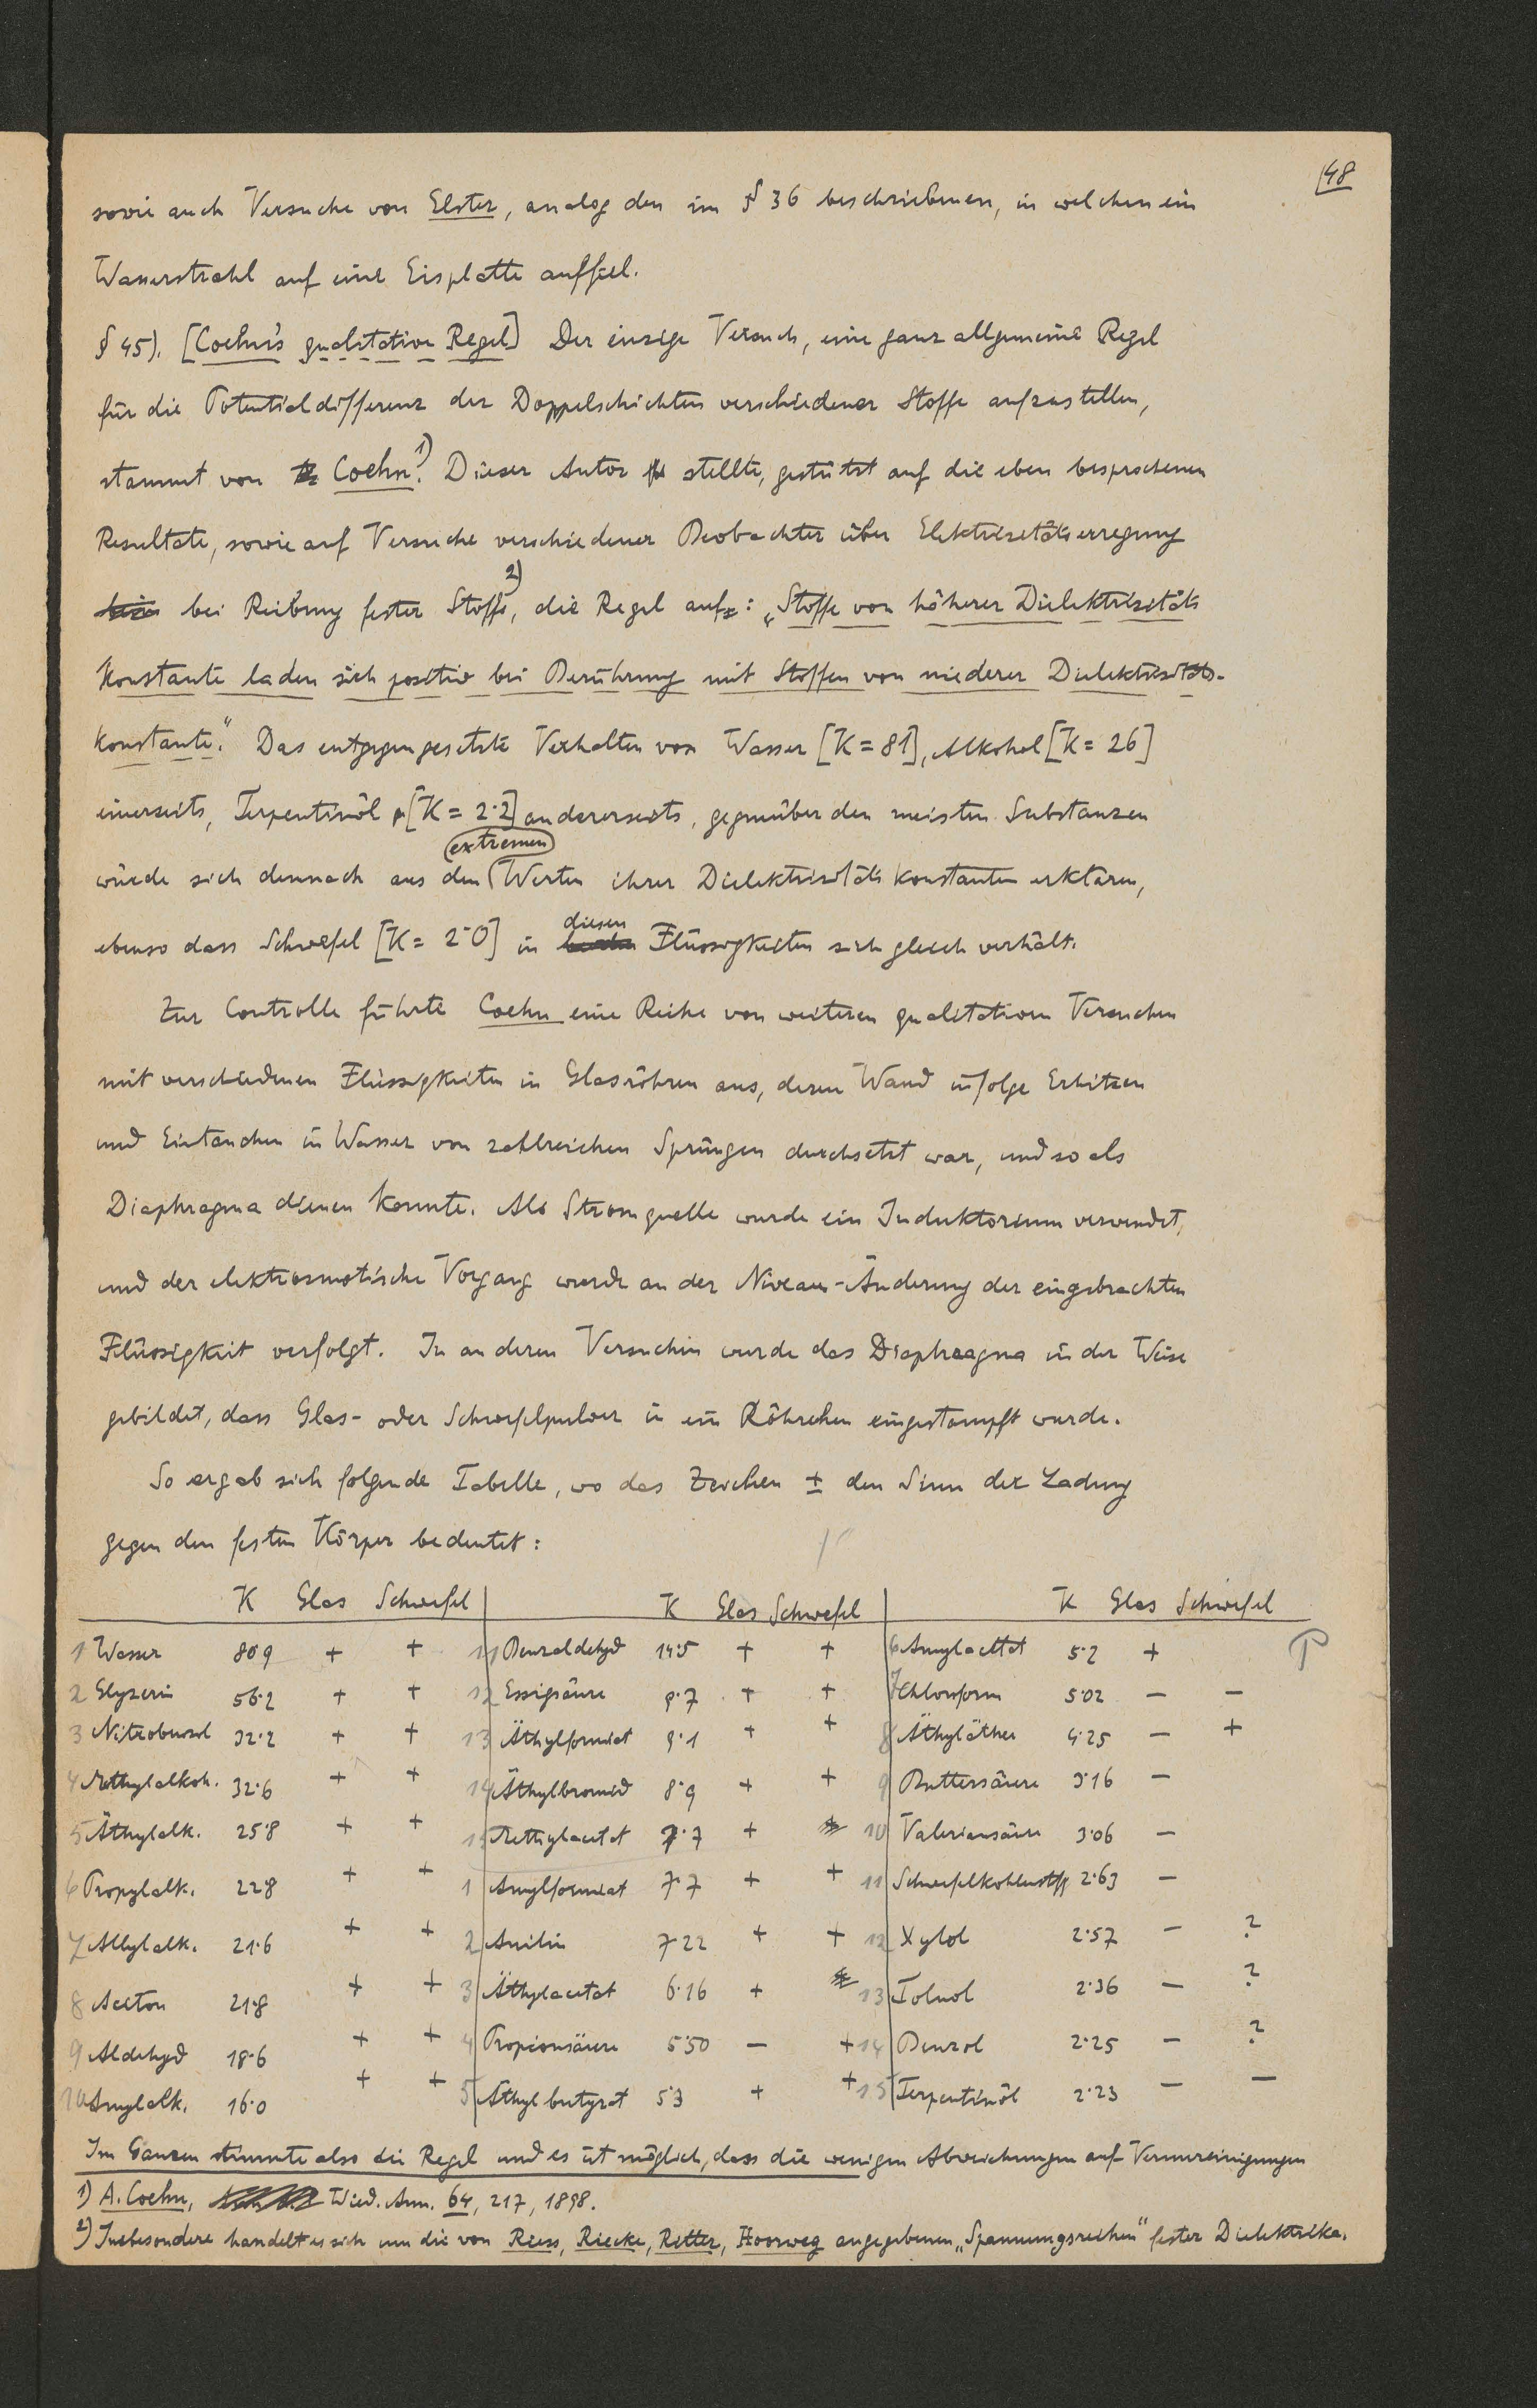 48
sowie auch Versuche von Elster, analog den im § 36 beschriebenen, in welchen ein
Wasserstrahl auf eine Eisplatte auffiel.
§ 45). [Coehn's qualitative Regel] Der einzige Versuch, eine ganz allgemeine Regel
für die Potentialdifferenz der Doppelschichten verschiedener Stoffe aufzustellen,
stammt von Coehn.1) Dieser Autor stellte, gestützt auf die eben besprochenen
Resultate, sowie auf Versuche verschiedener Beobachter über Elektrizitätserregung
bei Reibung fester Stoffe2), die Regel auf: „Stoffe von höherer Dielektrizitäts
Konstante laden sich positiv bei Berührung mit Stoffen von niederer Dielektrizitäts-
konstante." Das entgegengesetzte Verhalten von Wasser [K = 81], Alkohol [K = 26]
einerseits, Terpentinöl [K = 2·2] andererseits, gegenüber den meisten Substanzen
würde sich demnach aus den extremen Werten ihrer Dielektrizitäts Konstanten erklären,
ebenso dass Schwefel [K = 2·0] in diesen Flüssigkeiten sich gleich verhält.
Zur Controlle führte Coehn eine Reihe von weiteren qualitativen Versuchen
mit verschiedenen Flüssigkeiten in Glasröhren aus, deren Wand infolge Erhitzen
und Eintauchen in Wasser von zahlreichen Sprüngen durchsetzt war, und so als
Diaphragma dienen konnte. Als Stromquelle wurde ein Induktorium verwendet,
und der elektrosmotische Vorgang wurde an der Niveau-Änderung der eingebrachten
Flüssigkeit verfolgt. In anderen Versuchen wurde das Diaphragma in der Weise
gebildet, dass Glas- oder Schwefelpulver in ein Röhrchen eingestampft wurde.
So ergab sich folgende Tabelle, wo das Zeichen ± den Sinn der Ladung
gegen den festen Körper bedeutet:
K Glas Schwefel K Glas Schwefel K Glas Schwefel
1 Wasser 80·9 + + 11 Benzaldehyd 14·5 + + 6 Amylacetat 5·2 +
2 Glyzerin 56·2 + + 12 Essigsäure 9·7 + + 7 Chloroform 5·02 − −
3 Nitrobenzol 32·2 + + 13 Äthylformiat 9·1 + + 8 Äthyläther 4·25 − +
4 Methylalkoh. 32·6 + + 14 Äthylbromid 8·9 + + 9 Buttersäure 3·16 −
5 Äthylalk. 25·8 + + 15 Methylacetat 7·7 + 10 Valeriansäure 3·06 −
6 Propylalk. 22·8 + + 1 Amylformiat 7·7 + + 11 Schwefelkohlenstoff 2·63 −
7 Allylalk. 21·6 + + 2 Anilin 7·22 + + 12 Xylol 2·57 − ?
8 Aceton 21·8 + + 3 Äthylacetat 6·16 + 13 Toluol 2·36 − ?
9 Aldehyd 18·6 + + 4 Propionsäure 5·50 − + 14 Benzol 2·25 − ?
10 Amylalk. 16·0 + + 5 Äthylbutyrat 5·3 + + 15 Terpentinöl 2·23 − −
Im Ganzen stimmte also die Regel und es ist möglich, dass die wenigen Abweichungen auf Verunreinigungen
1) A. Coehn, Wied. Ann. 64, 217, 1898.
2) Insbesondere handelt es sich um die von Riess, Riecke, Ritter, Hoorweg angegebenen „Spannungsreihen" fester Dielektrika.